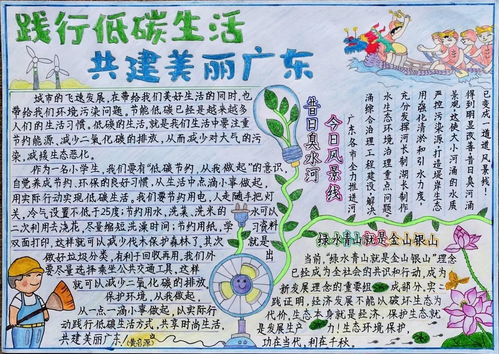 践行低碳生活
共建美丽广东
城市的飞速发展，在带给我们美好生活的同时，也
带给我们环境污染问题，节能低碳已经是越来越多
人们的生活习惯，低碳的生活，就是我们生活中要注重
节约能源，减少二氧化碳的排放，从而减少对大气的污
染，减缓生态恶化。
作为一名小学生，我们要有“低碳节约，从我做起”的意识，
自觉养成节约、环保的良好习惯，从生活中点滴小事做起，
用实际行动实现低碳生活。我们要节约用电，人走随手把灯
关，冷气设置不低于25度；节约用水，洗菜、洗米的 水可以
二次利用去浇花，尽量缩短洗澡时间；节约用纸，学 习资料
双面打印，这样就可以减少伐木保护森林了。其次 就是
做好垃圾分类，有利于回收再用，我们外
要尽量选择乘坐公共交通工具，这样
就可以减少二氧化碳的排放，
保护环境，从我做起，
从一点一滴小事做起，以实际行
动践行低碳生活方式，共享时尚生活，
共建美丽广东！
昔日臭水河
今日风景线
广东各市全力推进河
涌综合治理工程建设，解决
水生态环境治理重点问题，
充分发挥河长制湖长制作
用强化清淤和引水力度，
严控污染源，打造堤岸生态
景观，这使大小河涌的水质
得到明显改善，昔日臭河涌
已变成一道道风景线！
绿水青山就是金山银山
当前，“绿水青山就是金山银山”理念
已经成为全社会的共识和行动，成为
新发展理念的重要组 成部分。实
践证明，经济发展不能以破坏生态为
代价，生态本身就是经济，保护生态就
是发展生产 力！生态环境保护，
功在当代，利在千秋。